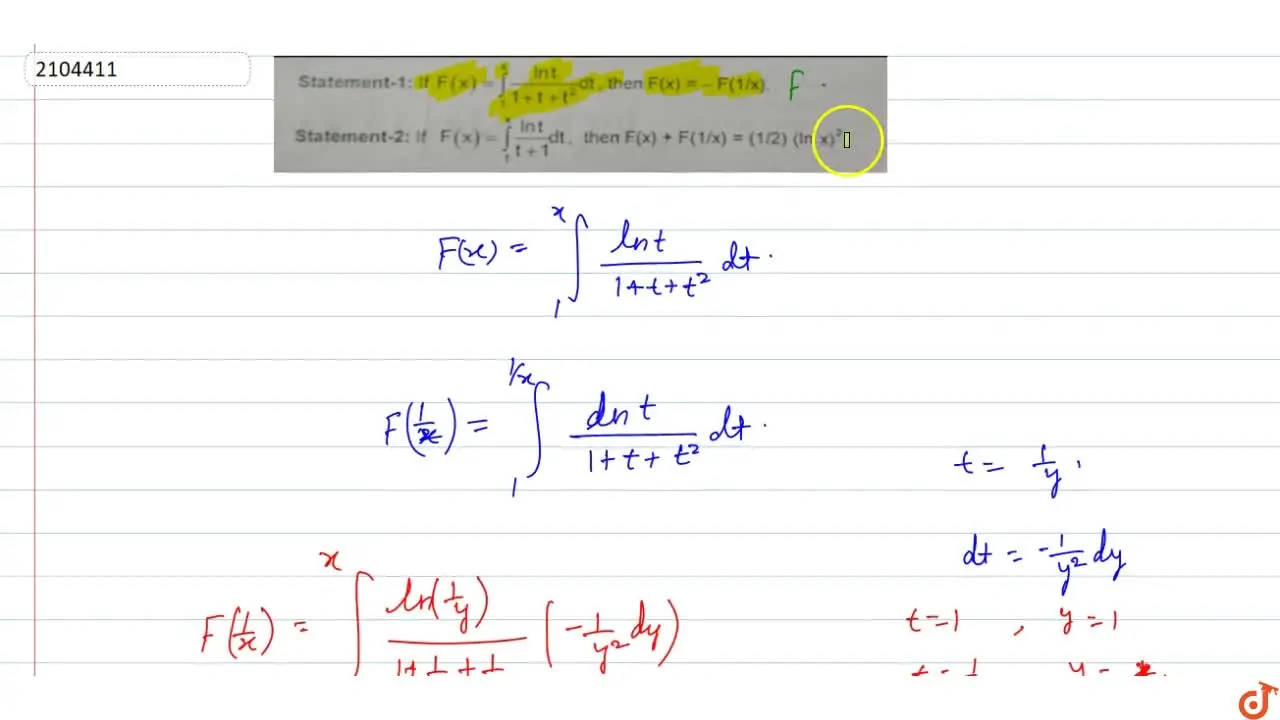 2104411
Statement-1: If F(x) = ∫₁ˣ ln t / (1 + t + t²) dt, then F(x) = – F(1/x). F
Statement-2: If F(x) = ∫₁ˣ ln t / (t + 1) dt, then F(x) + F(1/x) = (1/2) (ln x)²
F(x) = ∫₁ˣ ln t / (1+t+t²) dt.
F(1/x) = ∫₁^(1/x) ln t / (1+t+t²) dt.
t = 1/y,
dt = -1/y² dy
F(1/x) = ∫ˣ ln(1/y) / (1+1/y+1/ (-1/y² dy)
t=1 , y=1